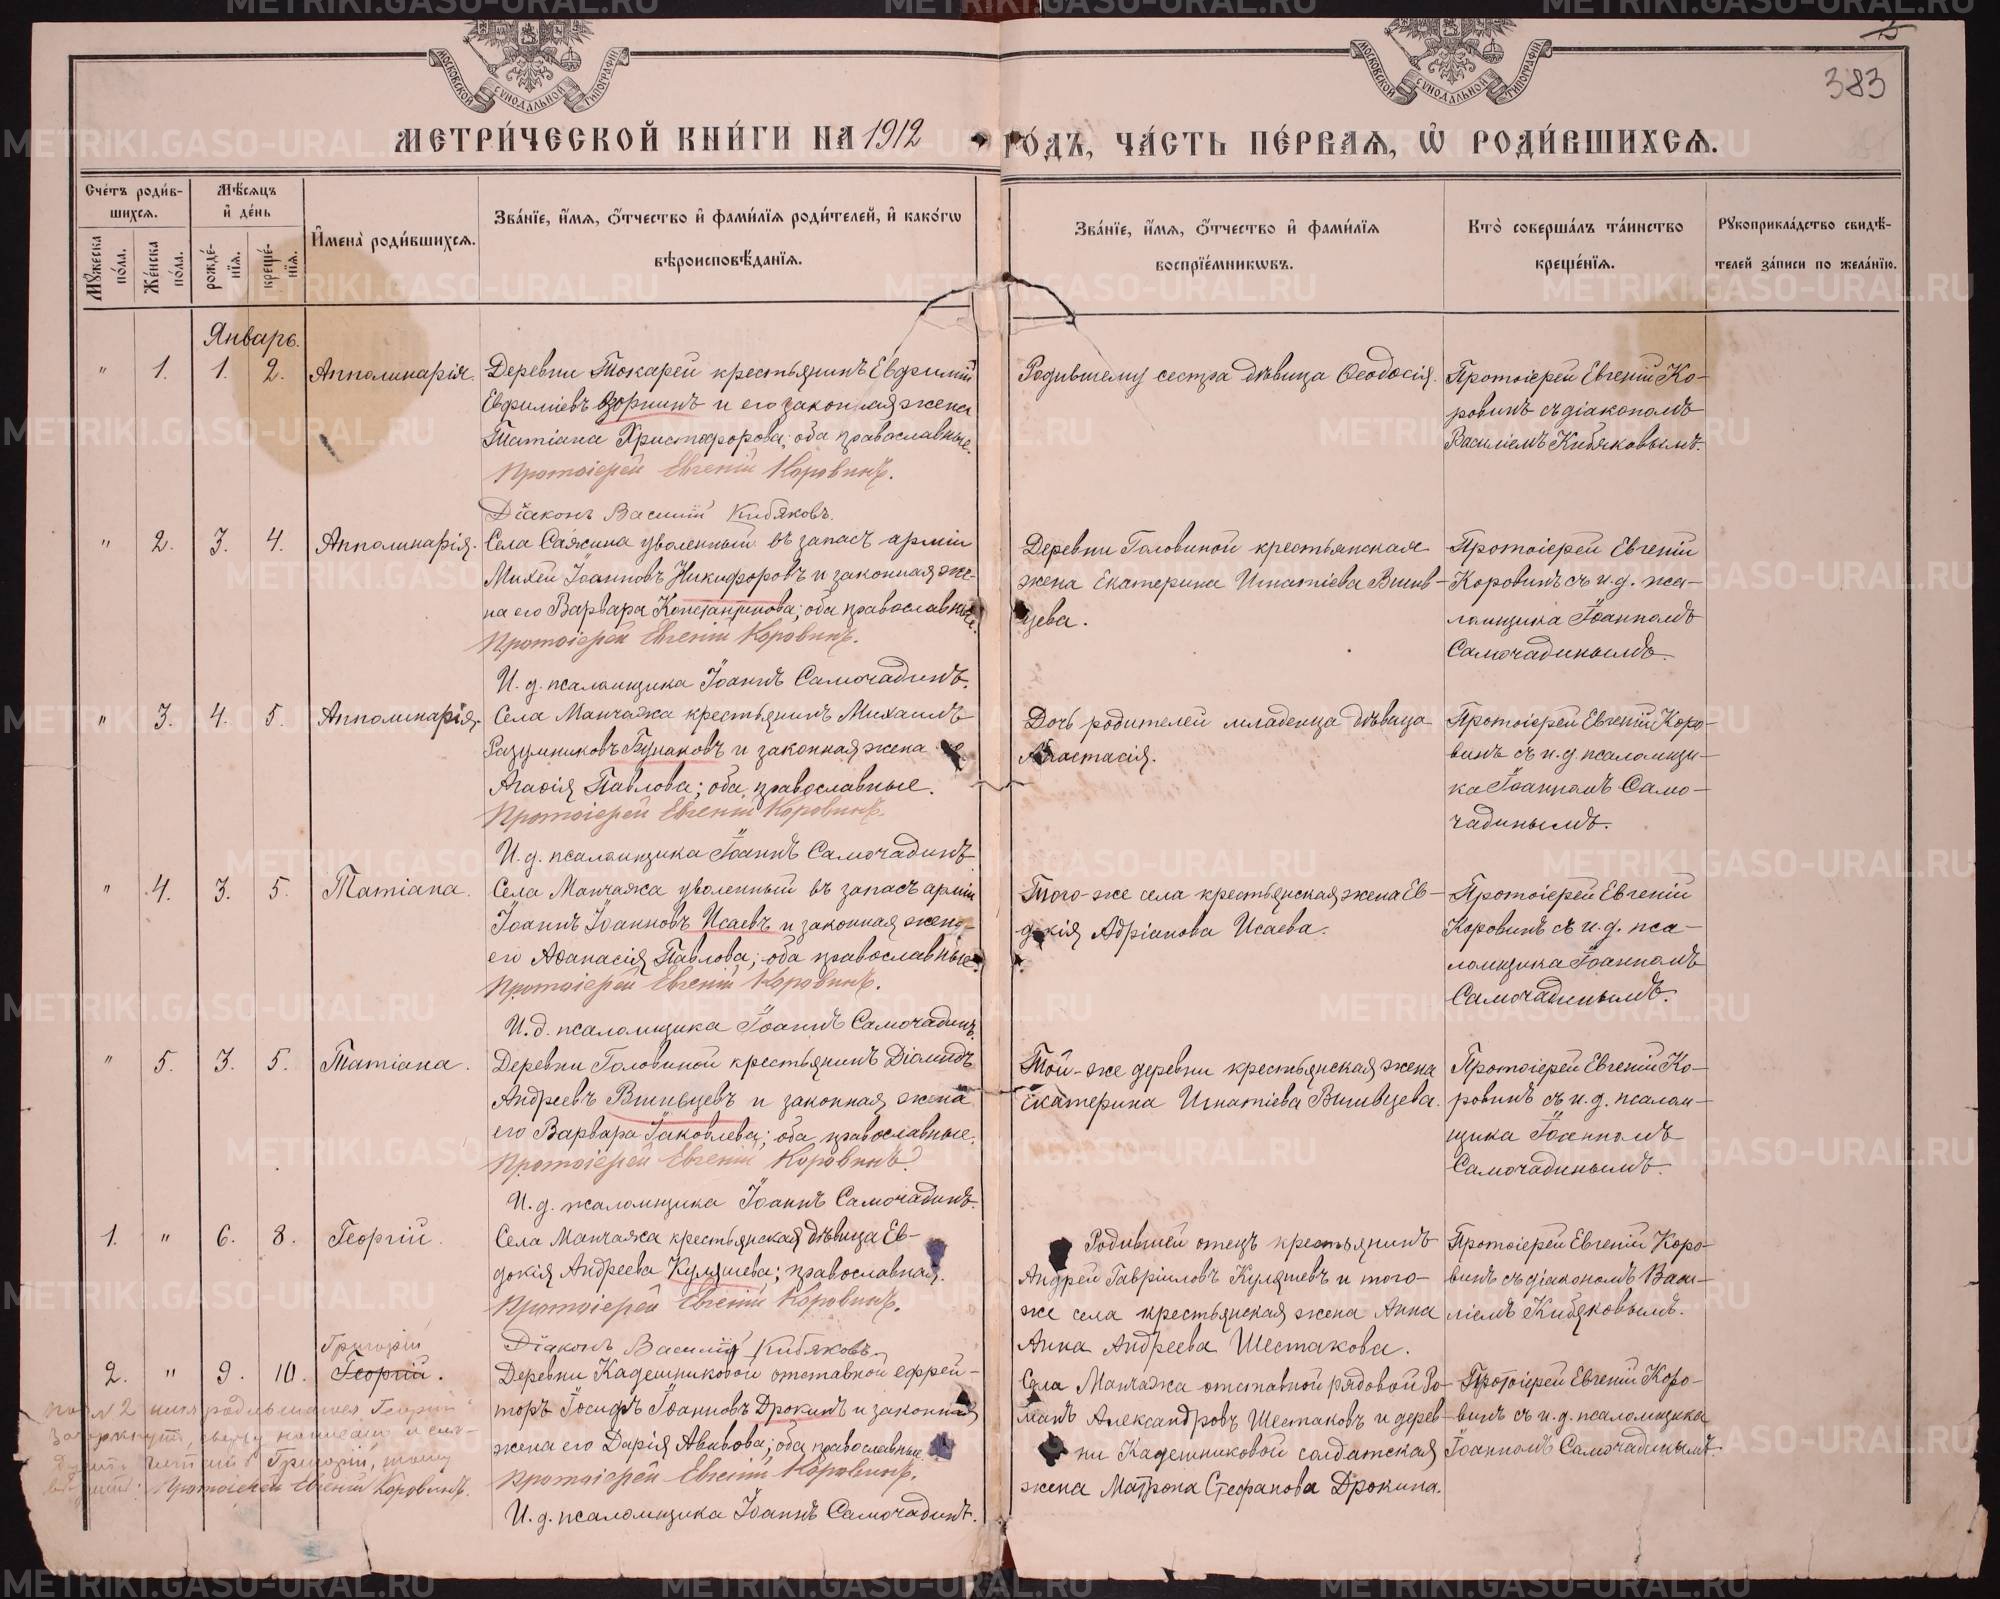 МОСКОВСКОЙ СѴНОДАЛЬНОЙ ТИПОГРАФІИ
МОСКОВСКОЙ СѴНОДАЛЬНОЙ ТИПОГРАФІИ
383
МЕТРИ́ЧЕСКОЙ КНИ́ГИ НА 1912 ГО́ДЪ, ЧА́СТЬ ПЕ́РВАѦ, Ѽ РОДИ́ВШИХСѦ.
Сче́тъ роди́в-
шихсѧ.
Мꙋ́жеска по́ла.
Же́нска по́ла.
Мѣ́сѧцъ
и҆ де́нь
рожде́-
нїѧ.
креще́-
нїѧ.
И҆мена̀ роди́вшихсѧ.
Зва́нїе, и҆́мѧ, ѻ҆́тчество и҆ фами́лїѧ роди́телей, и҆ како́гѡ
вѣроисповѣ́данїѧ.
Зва́нїе, и҆́мѧ, ѻ҆́тчество и҆ фами́лїѧ
воспрїе́мникѡвъ.
Кто̀ соверша́лъ та́инство
креще́нїѧ.
Рꙋкоприкла́дство свидѣ́-
телей за́писи по жела́нїю.
Январь.
" 1. 1. 2. Апполинарія.
Деревни Токарей крестьянинъ Евфимій
Евфиміевъ Озорнинъ и его законная жена
Татіана Христофорова; оба православные.
Протоіерей Евгеній Коровинъ.
Діаконъ Василій Кибяковъ.
Родившему сестра дѣвица Ѳеодосія.
Протоіерей Евгеній Ко-
ровинъ съ діакономъ
Василіемъ Кибяковымъ.
" 2. 3. 4. Апполинарія.
Села Сажина уволенный въ запасъ арміи
Михей Іоанновъ Никифоровъ и законная же-
на его Варвара Константинова; оба православные.
Протоіерей Евгеній Коровинъ.
И. д. псаломщика Іоаннъ Самочадинъ.
Деревни Головиной крестьянская
жена Екатерина Игнатіева Вшив-
цева.
Протоіерей Евгеній
Коровинъ съ и. д. пса-
ломщика Іоанномъ
Самочадинымъ.
" 3. 4. 5. Апполинарія.
Села Манчажа крестьянинъ Михаилъ
Разумниковъ Бунаковъ и законная жена его
Агаѳія Павлова; оба православные.
Протоіерей Евгеній Коровинъ.
И. д. псаломщика Іоаннъ Самочадинъ
Дочь родителей младенца дѣвица
Анастасія.
Протоіерей Евгеній Коро-
винъ съ и. д. псаломщи-
ка Іоанномъ Само-
чадинымъ.
" 4. 3. 5. Татіана.
Села Манчажа уволенный въ запасъ арміи
Іоаннъ Іоанновъ Исаевъ и законная жена
его Аѳанасія Павлова; оба православные.
Протоіерей Евгеній Коровинъ.
И. д. псаломщика Іоаннъ Самочадинъ.
Того-же села крестьянская жена Ев-
докія Адріанова Исаева.
Протоіерей Евгеній
Коровинъ съ и. д. пса-
ломщика Іоанномъ
Самочадинымъ.
" 5. 3. 5. Татіана.
Деревни Головиной крестьянинъ Діомидъ
Андреевъ Вшивцевъ и законная жена
его Варвара Іаковлева; оба православные.
Протоіерей Евгеній Коровинъ.
И. д. псаломщика Іоаннъ Самочадинъ.
Той-же деревни крестьянская жена
Екатерина Игнатіева Вшивцева.
Протоіерей Евгеній Ко-
ровинъ съ и. д. псалом-
щика Іоанномъ
Самочадинымъ.
1. " 6. 8. Георгій.
Села Манчажа крестьянская дѣвица Ев-
докія Андреева Куляшева; православная.
Протоіерей Евгеній Коровинъ.
Діаконъ Василій Кибяковъ.
Родившей отецъ крестьянинъ
Андрей Гавріиловъ Куляшевъ и того-
же села крестьянская жена Анна
Анна Андреева Шестакова.
Протоіерей Евгеній Коро-
винъ съ діакономъ Васи-
ліемъ Кибяковымъ.
Григорій
2. " 9. 10. Георгій.
Деревни Кадешниковой отставной ефрей-
торъ Іосифъ Іоанновъ Дрокинъ и законная
жена его Дарія Авивова; оба православные.
Протоіерей Евгеній Коровинъ.
И. д. псаломщика Іоаннъ Самочадинъ.
Села Манчажа отставной рядовой Ро-
манъ Александровъ Шестаковъ и дерев-
ни Кадешниковой солдатская
жена Матрона Стефанова Дрокина.
Протоіерей Евгеній Коро-
винъ съ и. д. псаломщика
Іоанномъ Самочадинымъ.
№ 2 имя родившагося Георгій
зачеркнуто, сверху написано и слѣ-
дуетъ читать Григорій, тому
Протоіерей Евгеній Коровинъ.
METRIKI.GASO-URAL.RU